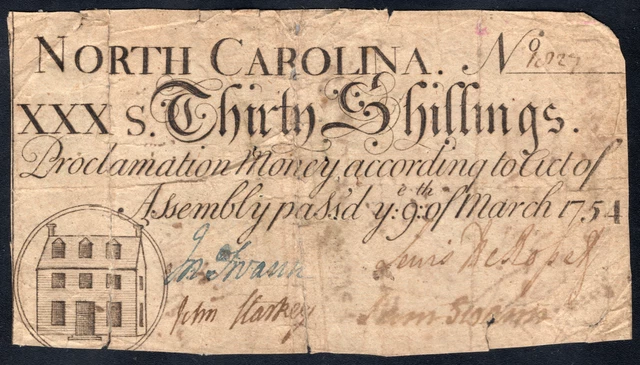 NORTH CAROLINA. No
XXX S. Thirty Shillings.
Proclamation Money, according to Act of
Assembly pass'd ye: 9th: of March 1754
Jn Swann Lewis DeRosset
John Starkey Sam Swann